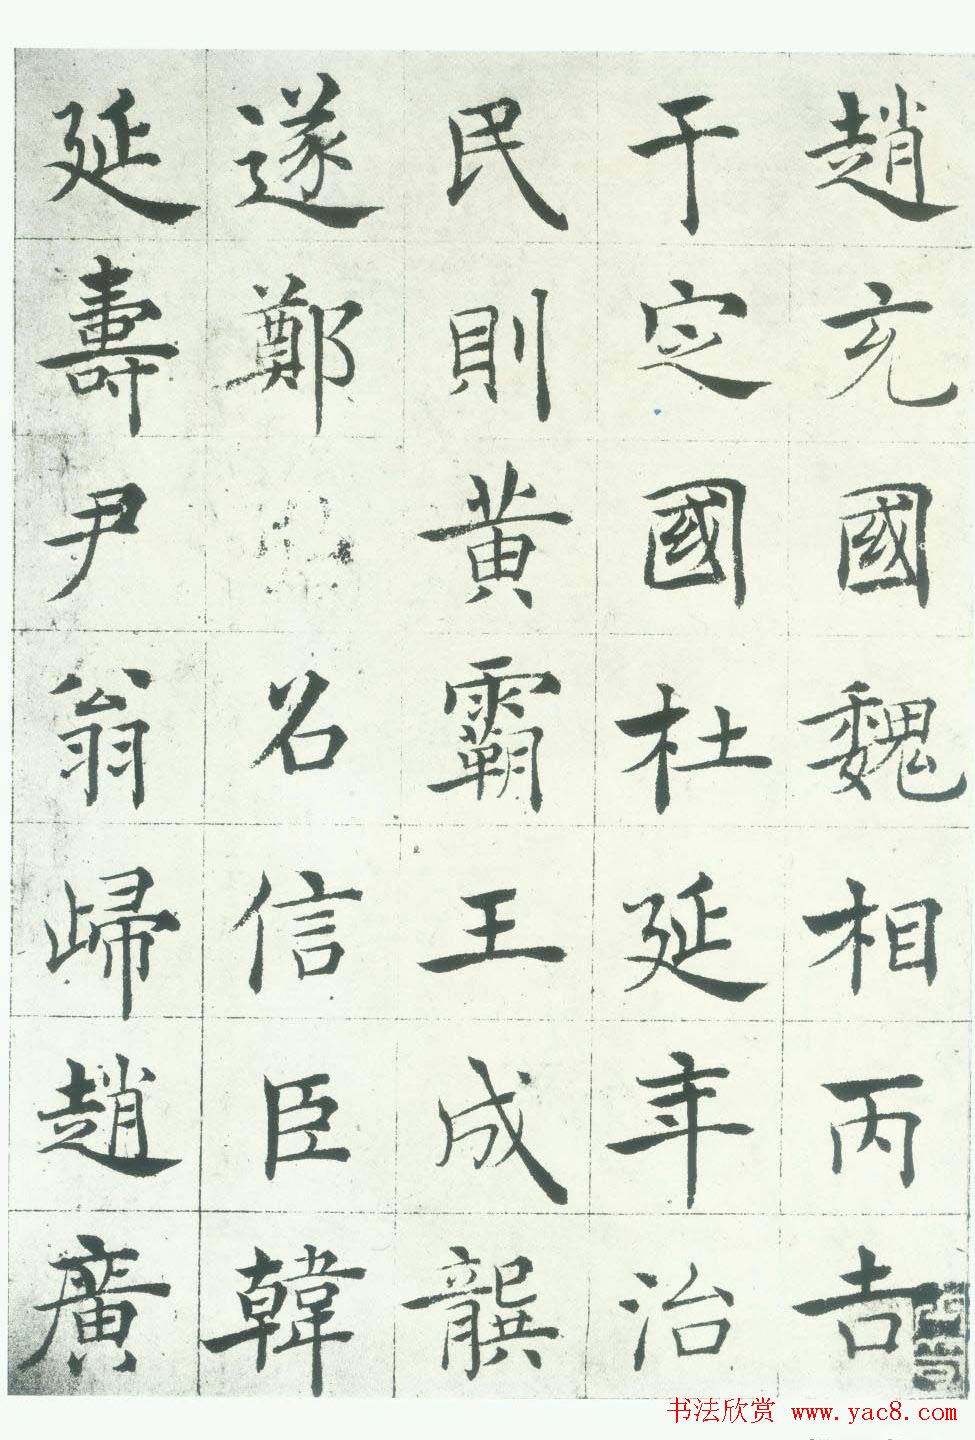 趙充國魏相丙吉
于定國杜延年治
民則黃霸王成龔
遂鄭召信臣韓
延壽尹翁歸趙廣
书法欣赏 www.yac8.com